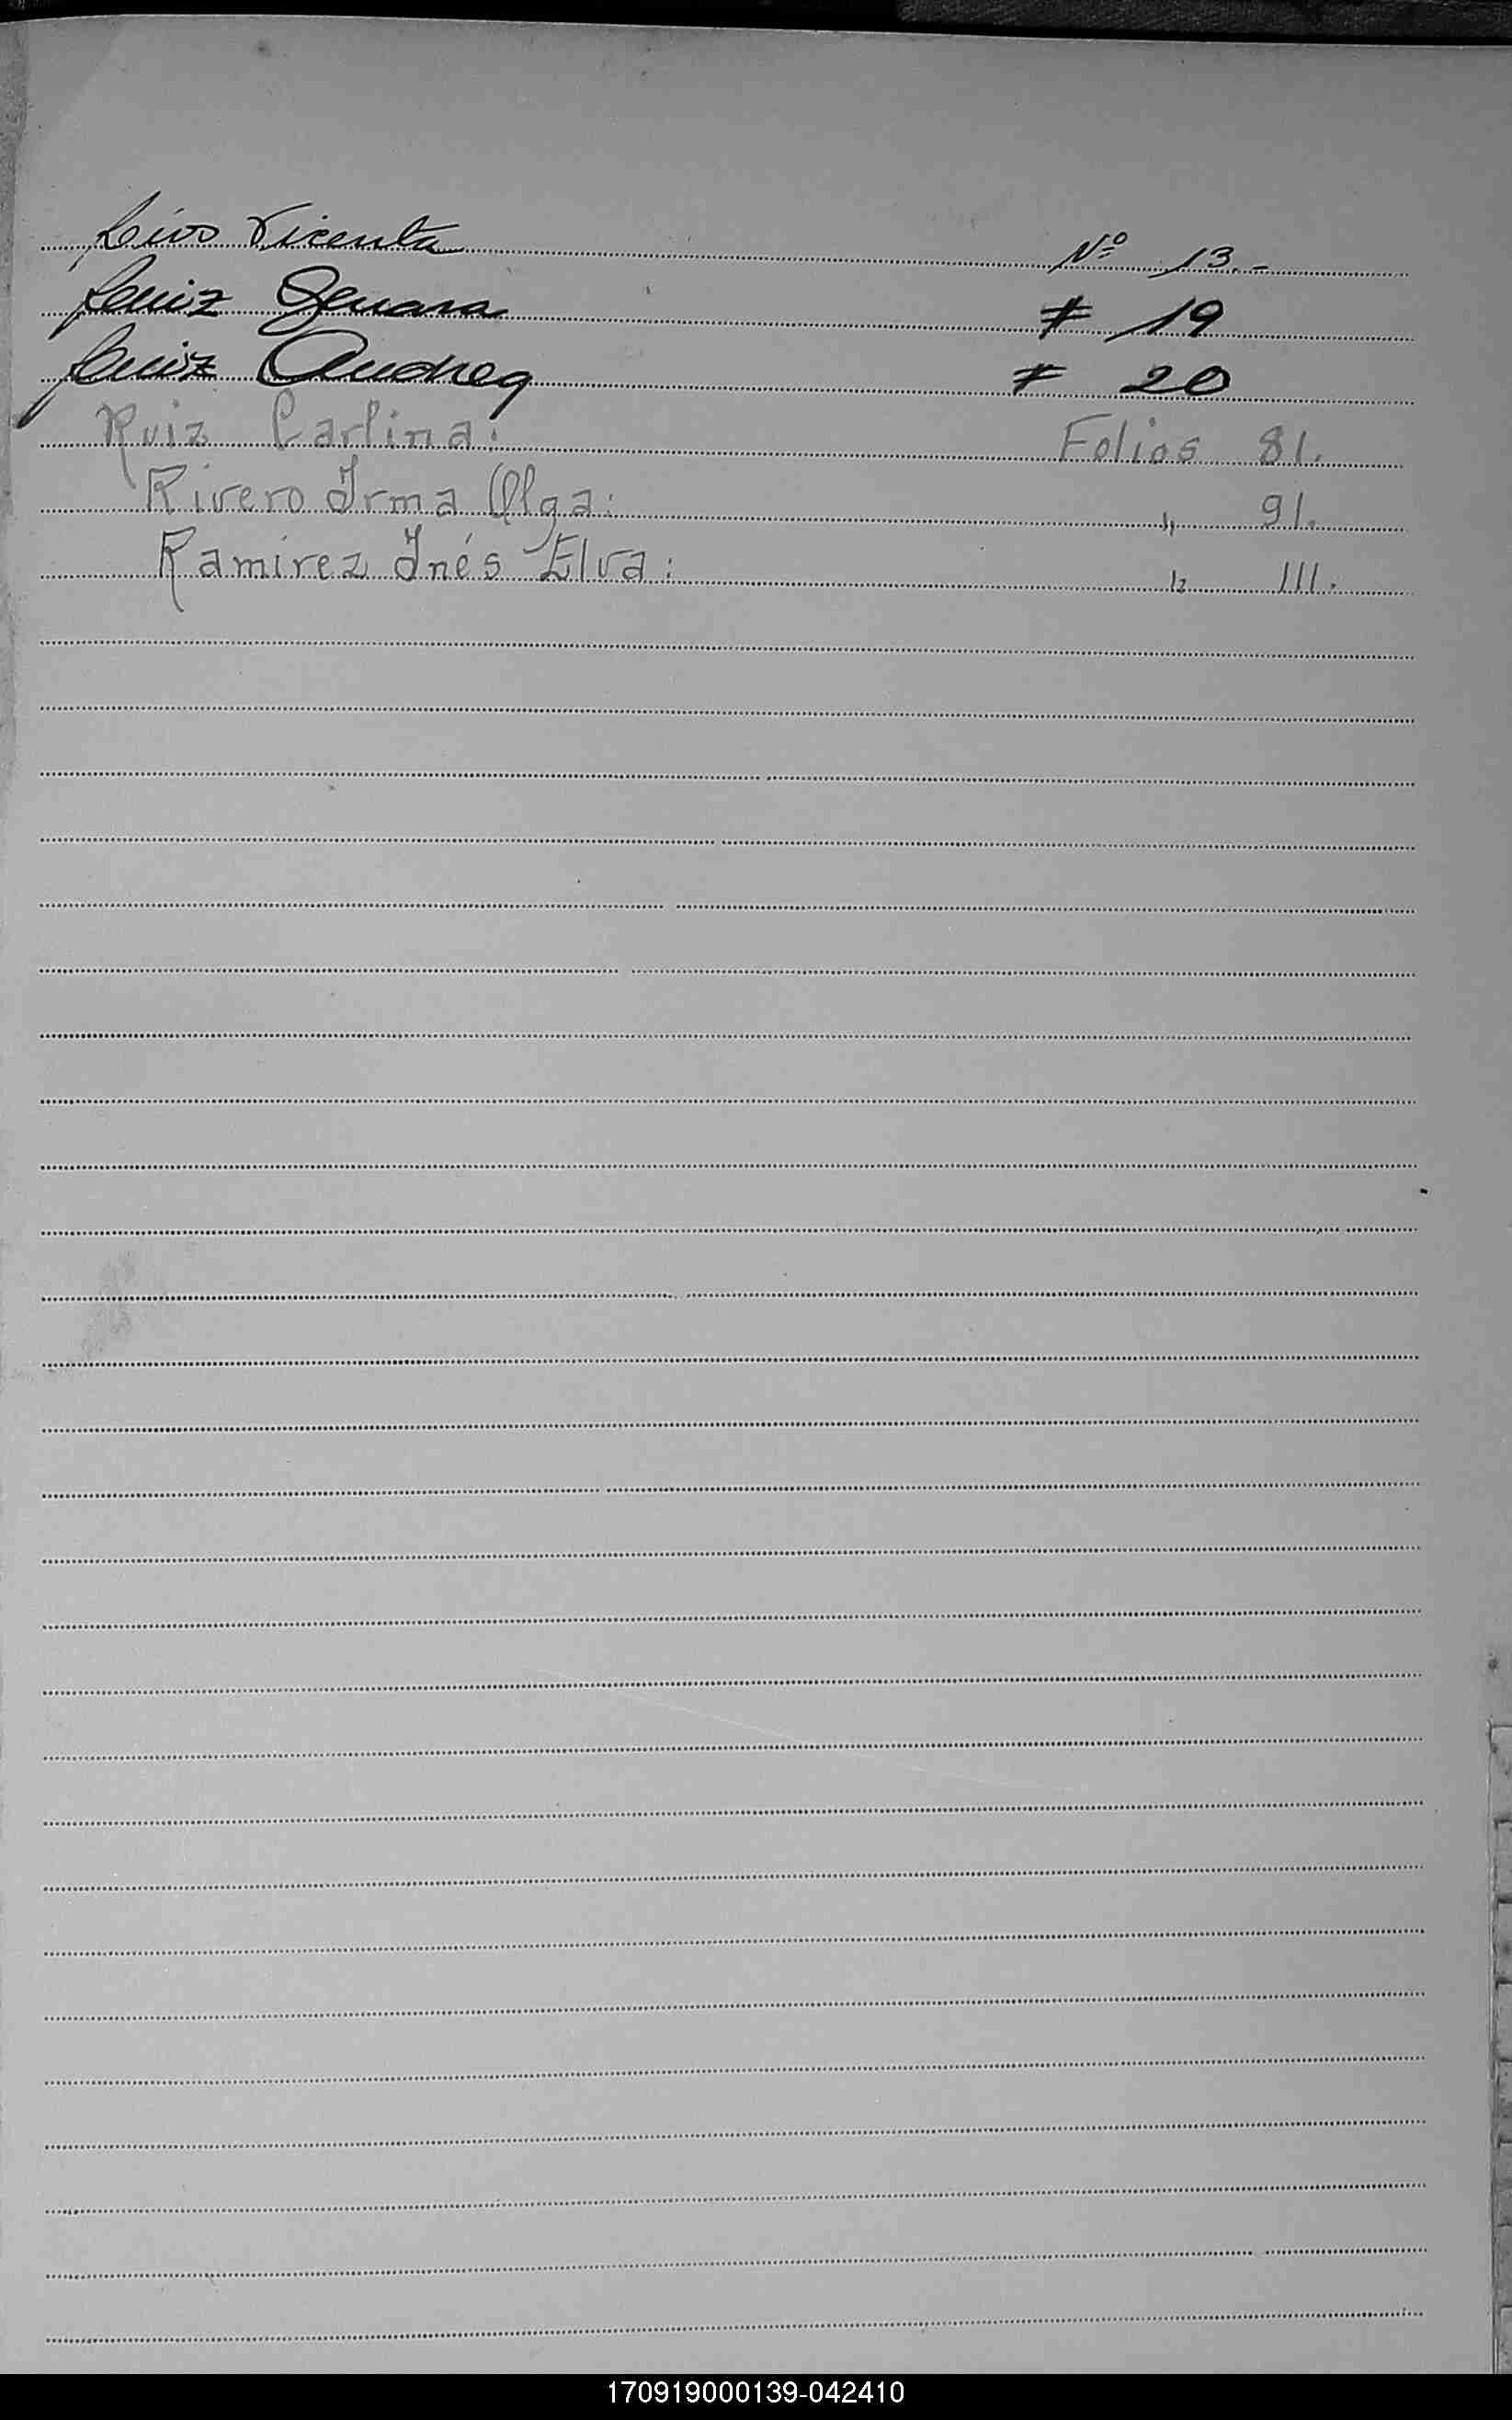 Rios Vicenta Nº 13.-
Ruiz Genara # 19
Ruiz Andrea # 20
Ruiz Carlina: Folios 81.
Rivero Irma Olga: " 91.
Ramirez Inés Elva: " 111.
170919000139-042410